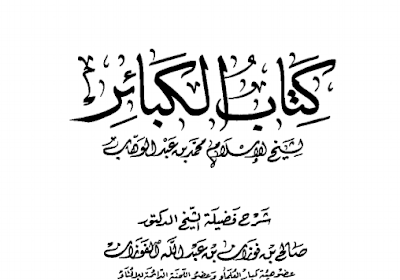 كِتَابُ الكَبَائِرِ
لشيخ الإسلام محمد بن عبد الوهاب
شرح فضيلة الشيخ الدكتور
صالح بن فوزان بن عبد الله الفوزان
عضو هيئة كبار العلماء وعضو اللجنة الدائمة للإفتاء